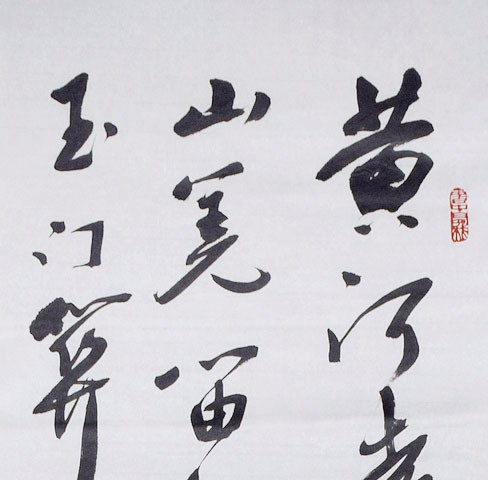 黄河
山羌笛
玉门关